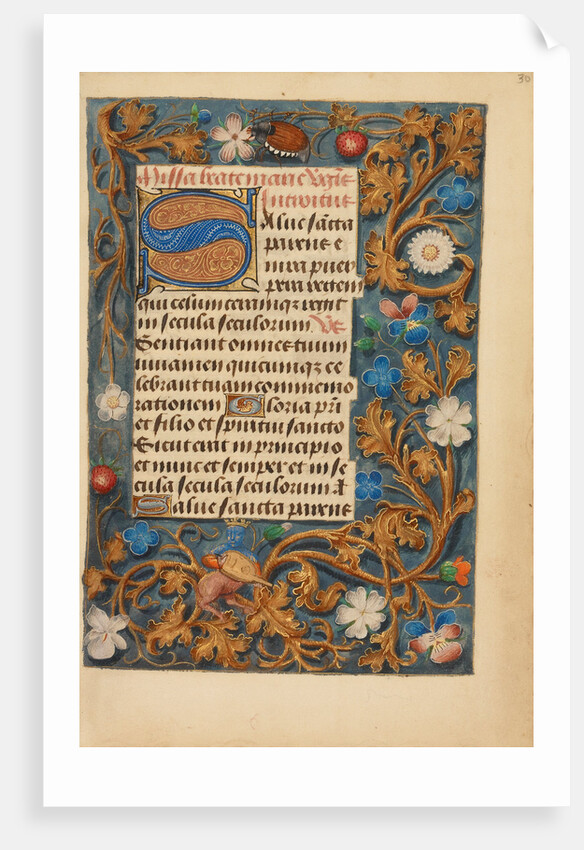 30
Missa beate marie v̄gīs
Introitus
Salue sc̄ta
parens e
nixa puer
pera regem
qui celum terramq₃ regit
in secula seculorum. Vs̄
Sentiant omnes tuum
iuuamen quicumq₃ ce
lebrant tuam commemo
rationem Gloria p̄ri
et filio et spiritui sancto
Sicut erat in principio
et nunc et semper et in se
cula secula seculorum A
Salue sancta parens